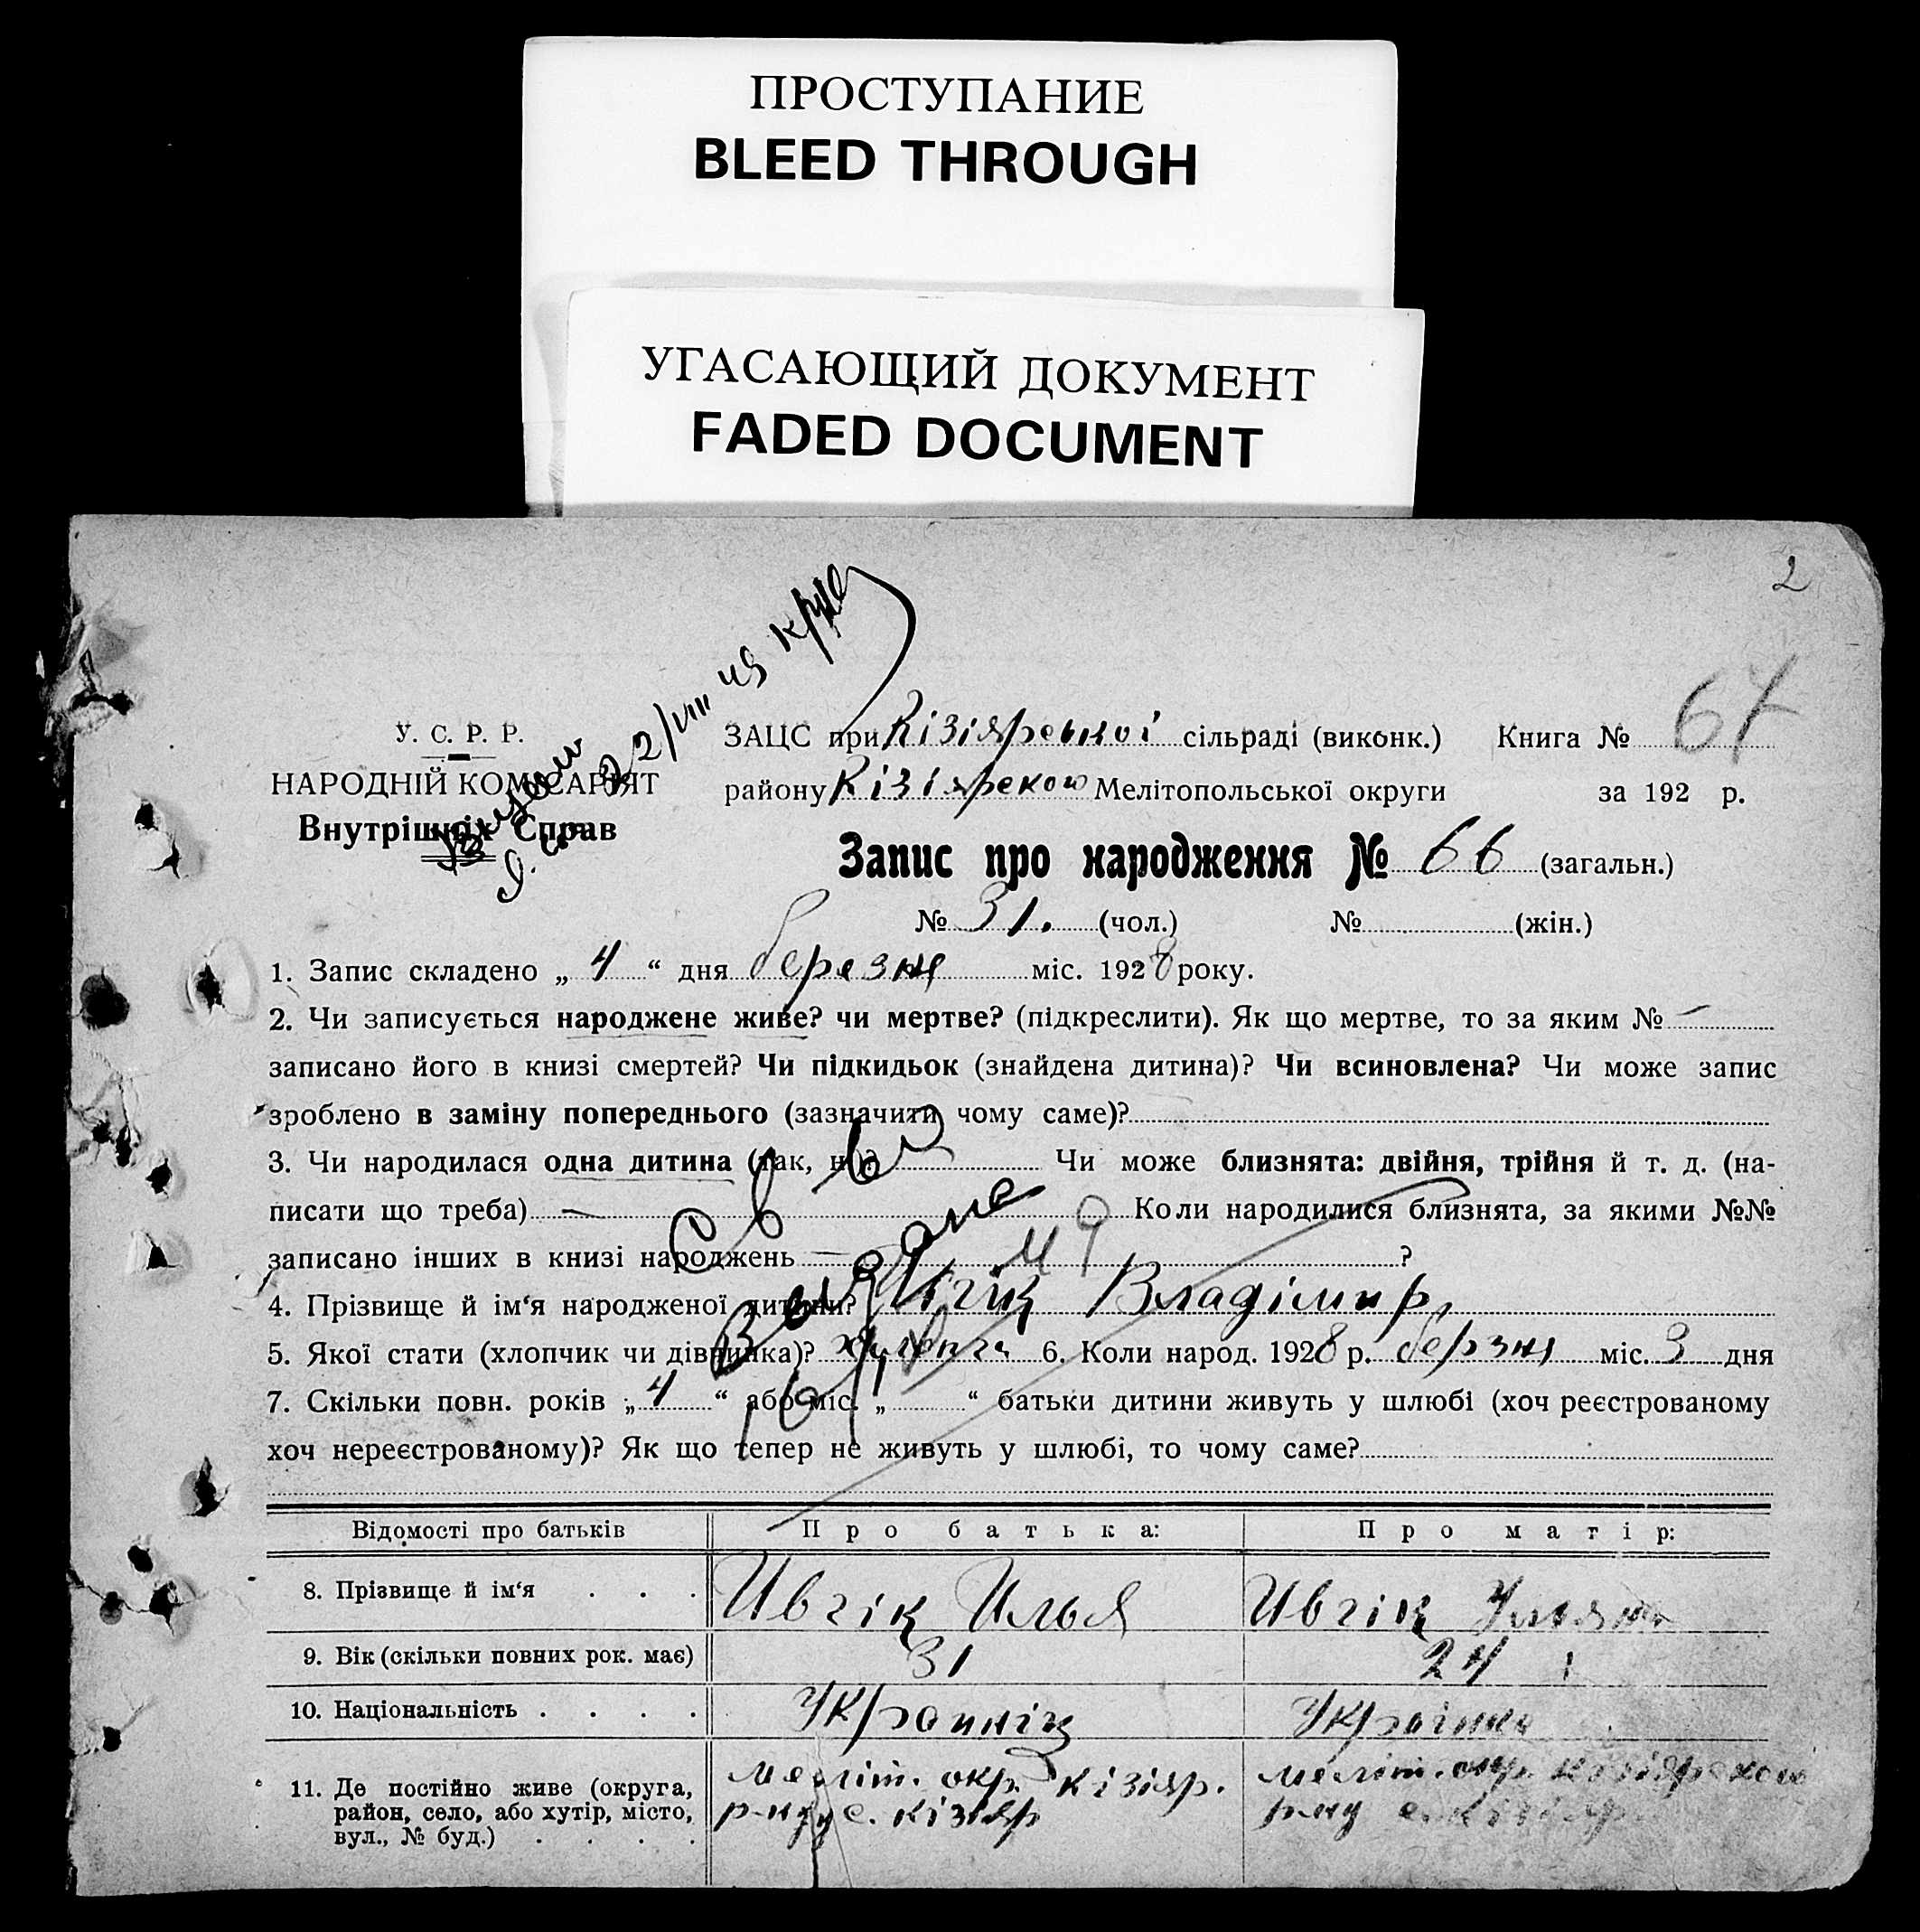 ПРОСТУПАНИЕ
BLEED THROUGH
УГАСАЮЩИЙ ДОКУМЕНТ
FADED DOCUMENT
2
22/VIII
У. С. Р. Р.
НАРОДНІЙ КОМІСАРІЯТ
Внутрішніх Справ
ЗАЦС при Кізіярської сільраді (виконк.) Книга № 67
району Кізіярского Мелітопольської округи за 192 р.
Запис про народження № 66 (загальн.)
№ 31. (чол.) № (жін.)
1. Запис складено „ 4 “ дня березня міс. 1928 року.
2. Чи записується народжене живе? чи мертве? (підкреслити). Як що мертве, то за яким № —
записано його в книзі смертей? Чи підкидьок (знайдена дитина)? Чи всиновлена? Чи може запис
зроблено в заміну попереднього (зазначити чому саме)?
3. Чи народилася одна дитина (так, ні)? Чи може близнята: двійня, трійня й т. д. (на-
писати що треба) — Коли народилися близнята, за якими №№
записано інших в книзі народжень — ?
4. Прізвище й ім‘я народженої дитини? Ивгік Владімир
5. Якої стати (хлопчик чи дівчинка)? 6. Коли народ. 1928 р. берзня міс. 3 дня
7. Скільки повн. років „ 4 “ або міс. „ “ батьки дитини живуть у шлюбі (хоч реєстрованому
хоч нереєстрованому)? Як що тепер не живуть у шлюбі, то чому саме?
Відомості про батьків Про батька: Про матір:
8. Прізвище й ім‘я . . . Ивгік Илья Ивгік
9. Вік (скільки повних рок. має) 31 24
10. Національність . . . . Украиніц Украінка
11. Де постійно живе (округа, меліт. окр. кізіяр. меліт. окр. кізіярского
район, село, або хутір, місто, р-ну с. кізіяр р-ну с. кізіяр
вул., № буд.) . . . .